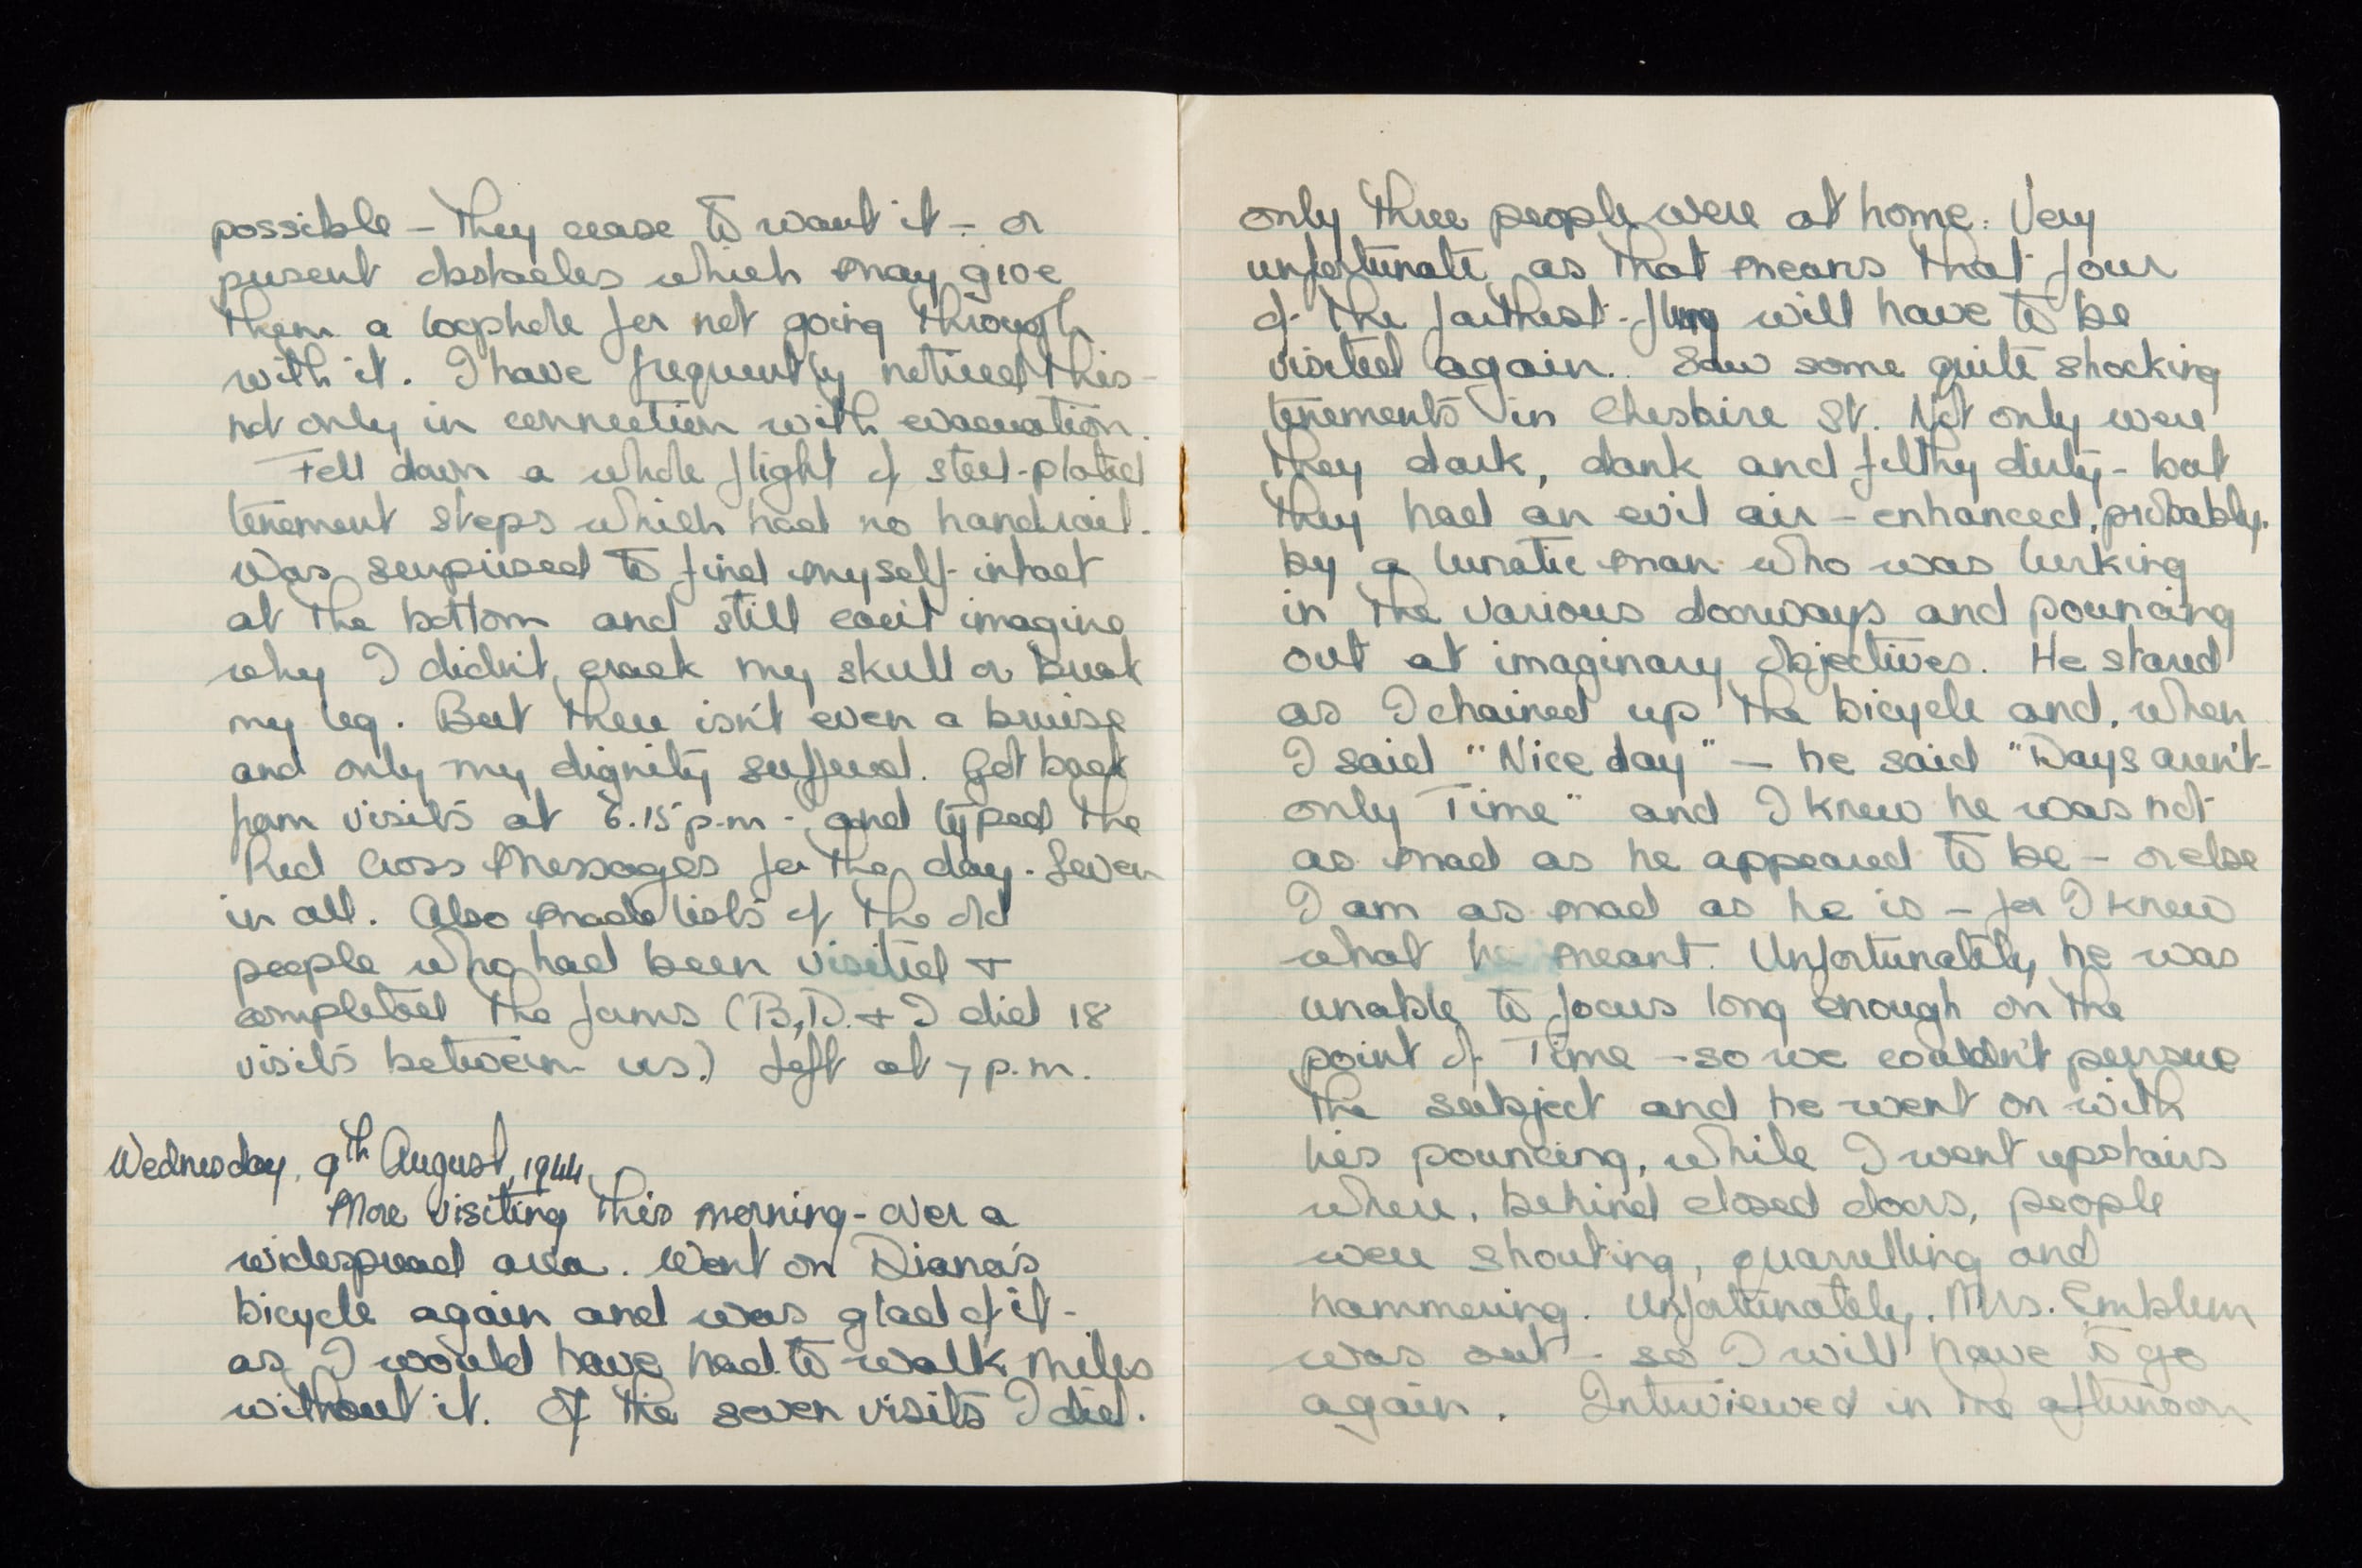 possible - they cease to want it - or
present obstacles which may give
them a loophole for not going through
with it. I have frequently noticed this -
not only in connection with evacuation.
Fell down a whole flight of steel-plated
tenement steps which had no handrail.
Was surprised to find myself intact
at the bottom and still can't imagine
why I didn't crack my skull or break
my leg. But there isn't even a bruise
and only my dignity suffered. Got back
from visits at 6.15 p.m. and typed the
Red Cross Messages for the day. Seven
in all. Also made lists of the old
people who had been visited +
completed the forms (B, D. + I did 18
visits between us.) Left at 7 p.m.
Wednesday, 9th August, 1944.
More visiting this morning - over a
widespread area. Went on Diana's
bicycle again and was glad of it -
as I would have had to walk miles
without it. Of the seven visits I did.
only three people were at home. Very
unfortunate, as that means that four
of the farthest-flung will have to be
visited again. Saw some quite shocking
tenements in Cheshire St. Not only were
they dark, dank and filthy dirty - but
they had an evil air - enhanced, probably,
by a lunatic man who was lurking
in the various doorways and pouncing
out at imaginary objectives. He stared
as I chained up the bicycle and, when
I said "Nice day" - he said "Days aren't -
only Time" and I knew he was not
as mad as he appeared to be - or else
I am as mad as he is - for I knew
what he meant. Unfortunately, he was
unable to focus long enough on the
point of Time - so we couldn't pursue
the subject and he went on with
his pouncing, while I went upstairs
where, behind closed doors, people
were shouting, quarrelling and
hammering. Unfortunately, Mrs. Emblem
was out - so I will have to go
again. Interviewed in the afternoon